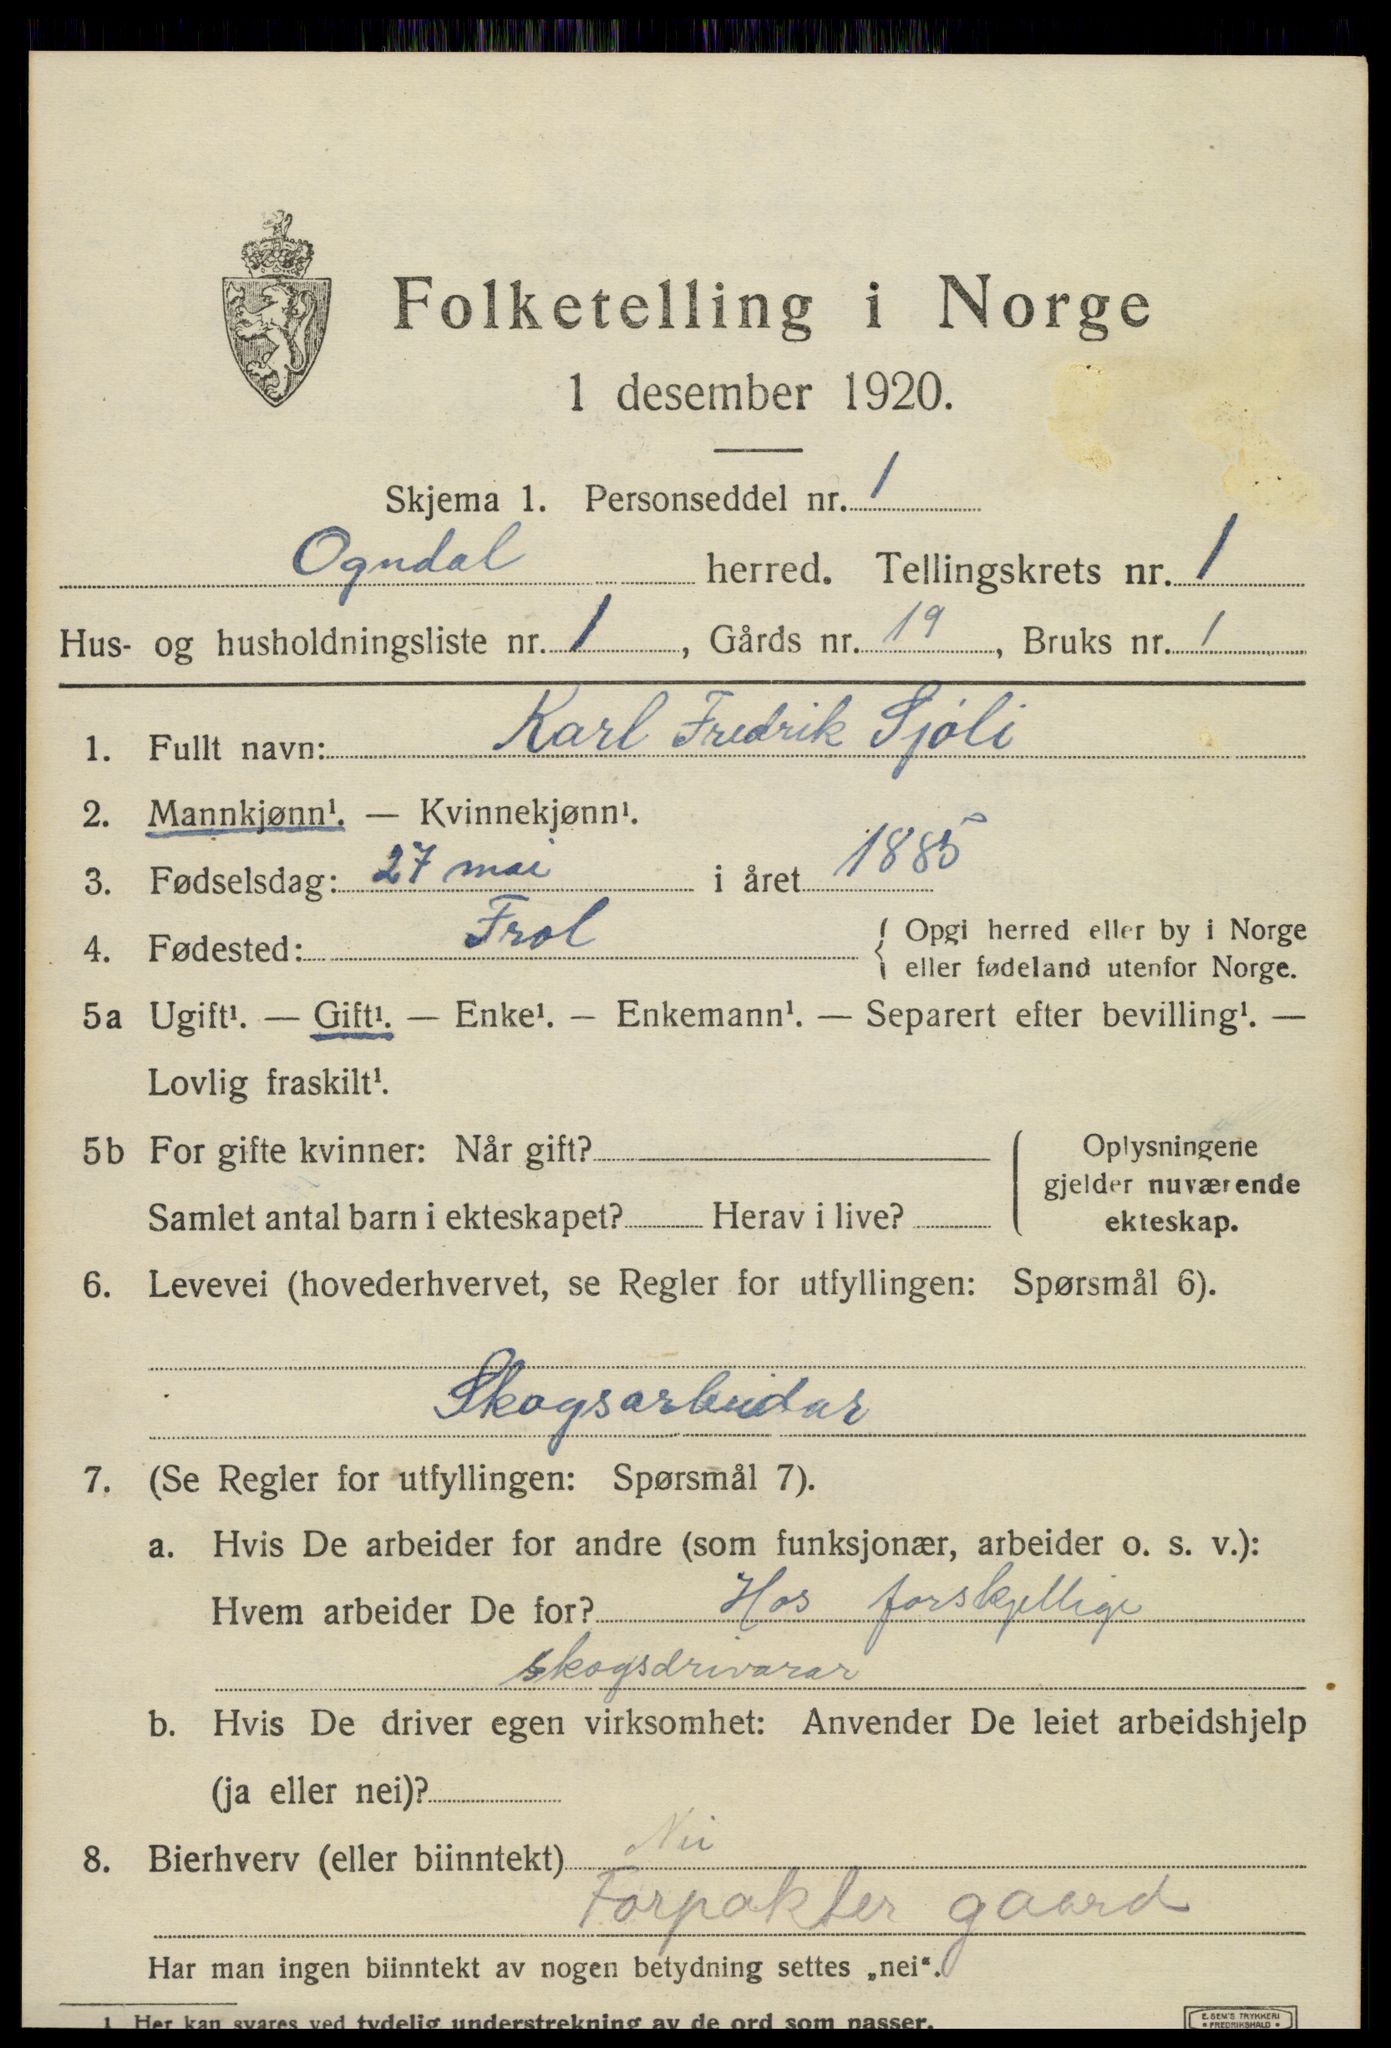 Folketelling i Norge
1 desember 1920.
Skjema 1. Personseddel nr. 1
Ogndal herred. Tellingskrets nr. 1
Hus- og husholdningsliste nr. 1, Gårds nr. 19, Bruks nr. 1
1. Fullt navn: Karl Fredrik Sjöli
2. Mannkjønn¹. — Kvinnekjønn¹.
3. Fødselsdag: 27 mai i året 1885
4. Fødested: Frol { Opgi herred eller by i Norge
eller fødeland utenfor Norge.
5a Ugift¹. — Gift¹. — Enke¹. — Enkemann¹. — Separert efter bevilling¹. —
Lovlig fraskilt¹.
5b For gifte kvinner: Når gift? ( Oplysningene
gjelder nuværende
Samlet antal barn i ekteskapet? Herav i live? ekteskap.
6. Levevei (hovederhvervet, se Regler for utfyllingen: Spørsmål 6).
Skogsarbeidar
7. (Se Regler for utfyllingen: Spørsmål 7).
a. Hvis De arbeider for andre (som funksjonær, arbeider o. s. v.):
Hvem arbeider De for? Hos forskjellige
skogsdrivarar
b. Hvis De driver egen virksomhet: Anvender De leiet arbeidshjelp
(ja eller nei)?
8. Bierhverv (eller biinntekt) Nei
Forpakter gaard
Har man ingen biinntekt av nogen betydning settes „nei“.
1 Her kan svares ved tydelig understrekning av de ord som passer.
E. SEM'S TRYKKERI
• FREDRIKSHALD •